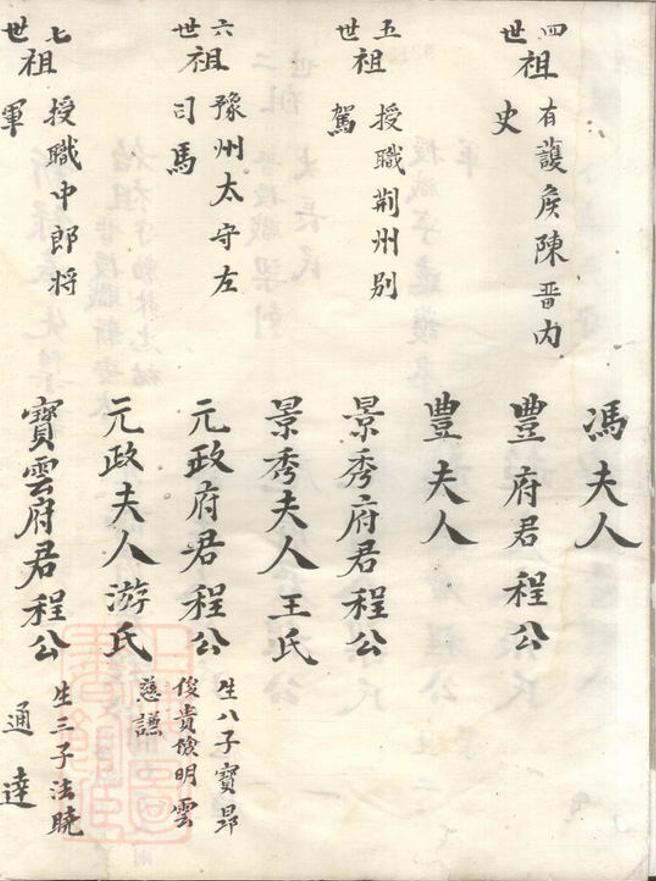 馮夫人
四世祖
有護侯陳晋内史
豐府君程公
豐夫人
五世祖
授職荆州别駕
景秀府君程公
景秀夫人王氏
六世祖
豫州太守左司馬
元政府君程公
生八子寶昂
俊貴儉明雲
慈謙
元政夫人游氏
七世祖
授職中郎将軍
寶雲府君程公
生三子法曉
通達